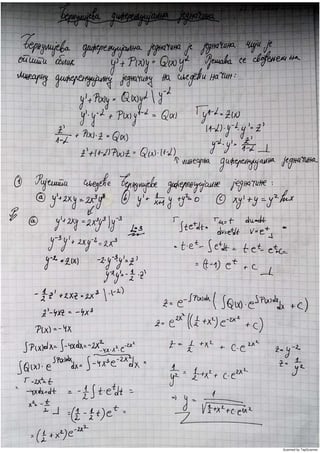 Бернулијева диференцијална једначина
Бернулијева диференцијална једначина је једначина чији је
општи облик y' + P(x)y = Q(x)y^α. Решава се свођењем на
линеарну диференцијалну једначину на следећи начин:
y' + P(x)y = Q(x)y^α | y^-α
y'·y^-α + P(x)y^1-α = Q(x)
y^1-α = z(x)
z'/(1-α) + P(x)·z = Q(x)
(1-α)·y^-α·y' = z'
y^-α·y' = z'/(1-α)
z' + (1-α)P(x)z = Q(x)·(1-α)
линеарна диференцијална једначина
① следеће Бернулијеве диференцијалне једначине:
ⓐ y' + 2xy = 2x³y³ ⓑ y' + 1/(x+1) y + y² = 0 ⓒ xy' + y = y² ln x
ⓐ y' + 2xy = 2x³y³ | y^-3
α=3
y^-3 y' + 2xy^-2 = 2x³
y^-2 = z(x) -2·y^-3 y' = z'
y^-3 y' = -1/2·z'
-1/2 z' + 2xz = 2x³ | ·(-2)
z' - 4xz = -4x³
P(x) = -4x
∫P(x)dx = ∫-4xdx = -2x²
∫Q(x)·e^∫P(x)dx dx = ∫-4x³e^-2x² dx =
-2x² = t
-4xdx = dt
x² = -t/2
= -1/2 ∫t·e^t dt =
= (1/2 - 1/2 t)e^t =
= (1/2 + x²)e^-2x²
∫te^t dt = u=t du=dt
dv=e^t dt v=e^t =
= t·e^t - ∫e^t dt = t·e^t - e^t + C =
= (t-1)e^t + C
z = e^-∫P(x)dx (∫Q(x)·e^∫P(x)dx dx + C)
z = e^2x² ((1/2 + x²)e^-2x² + C)
z = 1/2 + x² + C·e^2x²
z = y^-2
z = 1/y²
1/y² = 1/2 + x² + C·e^2x²
⇒ y = 1/√(1/2 + x² + C·e^2x²)
Scanned by TapScanner